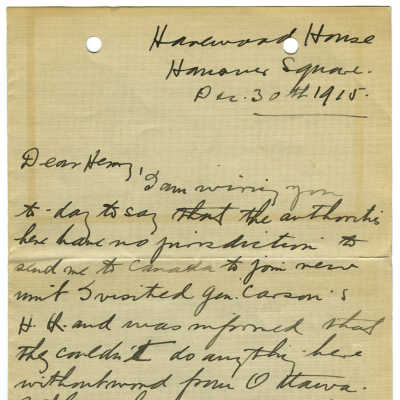 Harewood House
Hanover Square.
Dec. 30th 1915.
Dear Henry,
I am wiring you
to-day to say that the authorities
here have no jurisdiction to
send me to Canada to join new
unit I visited Gen. Carson's
H.H. and was informed that
they couldn't do anything here
without word from Ottawa.